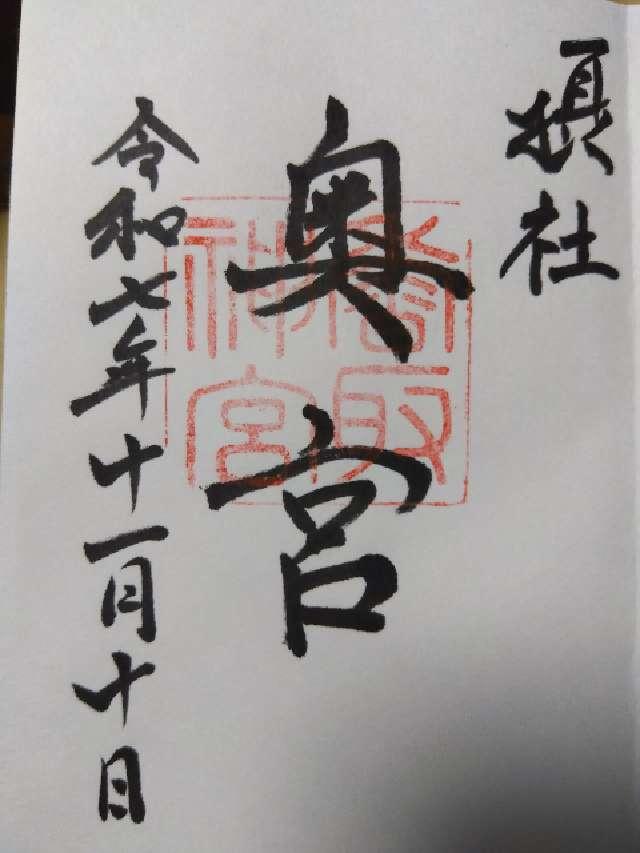 摂社
奥宮
香取神宮
令和七年十一月十日